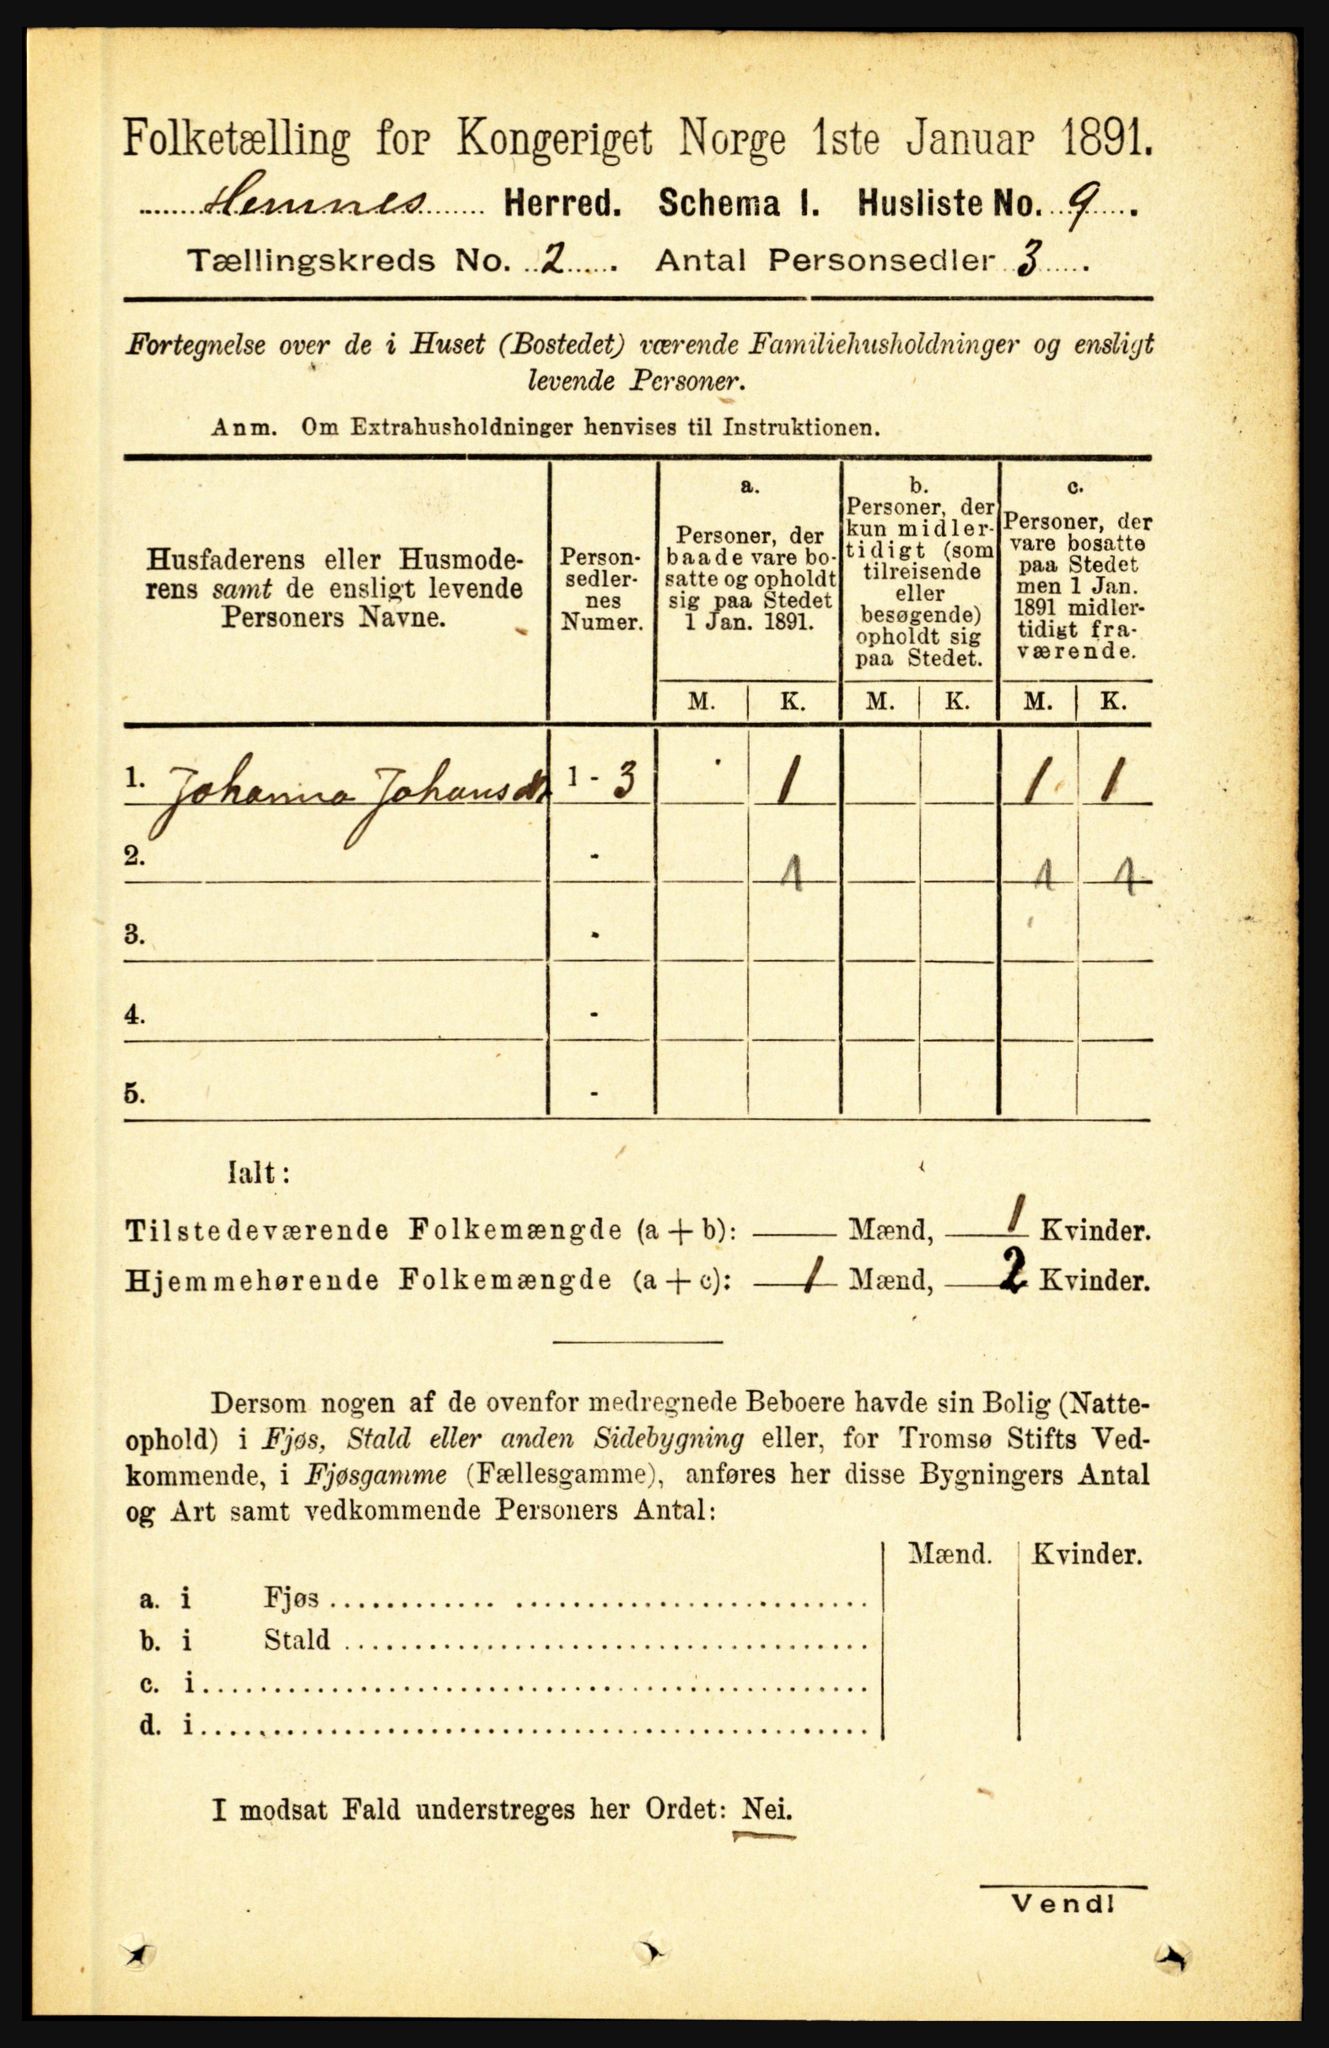 Folketælling for Kongeriget Norge 1ste Januar 1891.
Hemnes Herred. Schema I. Husliste No. 9.
Tællingskreds No. 2. Antal Personsedler 3.
Fortegnelse over de i Huset (Bostedet) værende Familiehusholdninger og ensligt
levende Personer.
Anm. Om Extrahusholdninger henvises til Instruktionen.
Husfaderens eller Husmode-
rens samt de ensligt levende
Personers Navne.
Person-
sedler-
nes
Numer.
a.
Personer, der
baade vare bo-
satte og opholdt
sig paa Stedet
1 Jan. 1891.
b.
Personer, der
kun midler-
tidigt (som
tilreisende
eller
besøgende)
opholdt sig
paa Stedet.
c.
Personer, der
vare bosatte
paa Stedet
men 1 Jan.
1891 midler-
tidigt fra-
værende.
M. K. M. K. M. K.
1. Johanna Johansdtr 1 - 3 1 1 1
2. - 1 1 1
3. -
4. -
5. -
Ialt:
Tilstedeværende Folkemængde (a + b): Mænd, 1 Kvinder.
Hjemmehørende Folkemængde (a + c): 1 Mænd, 2 Kvinder.
Dersom nogen af de ovenfor medregnede Beboere havde sin Bolig (Natte-
ophold) i Fjøs, Stald eller anden Sidebygning eller, for Tromsø Stifts Ved-
kommende, i Fjøsgamme (Fællesgamme), anføres her disse Bygningers Antal
og Art samt vedkommende Personers Antal:
Mænd. Kvinder.
a. i Fjøs
b. i Stald
c. i
d. i
I modsat Fald understreges her Ordet: Nei.
Vend!